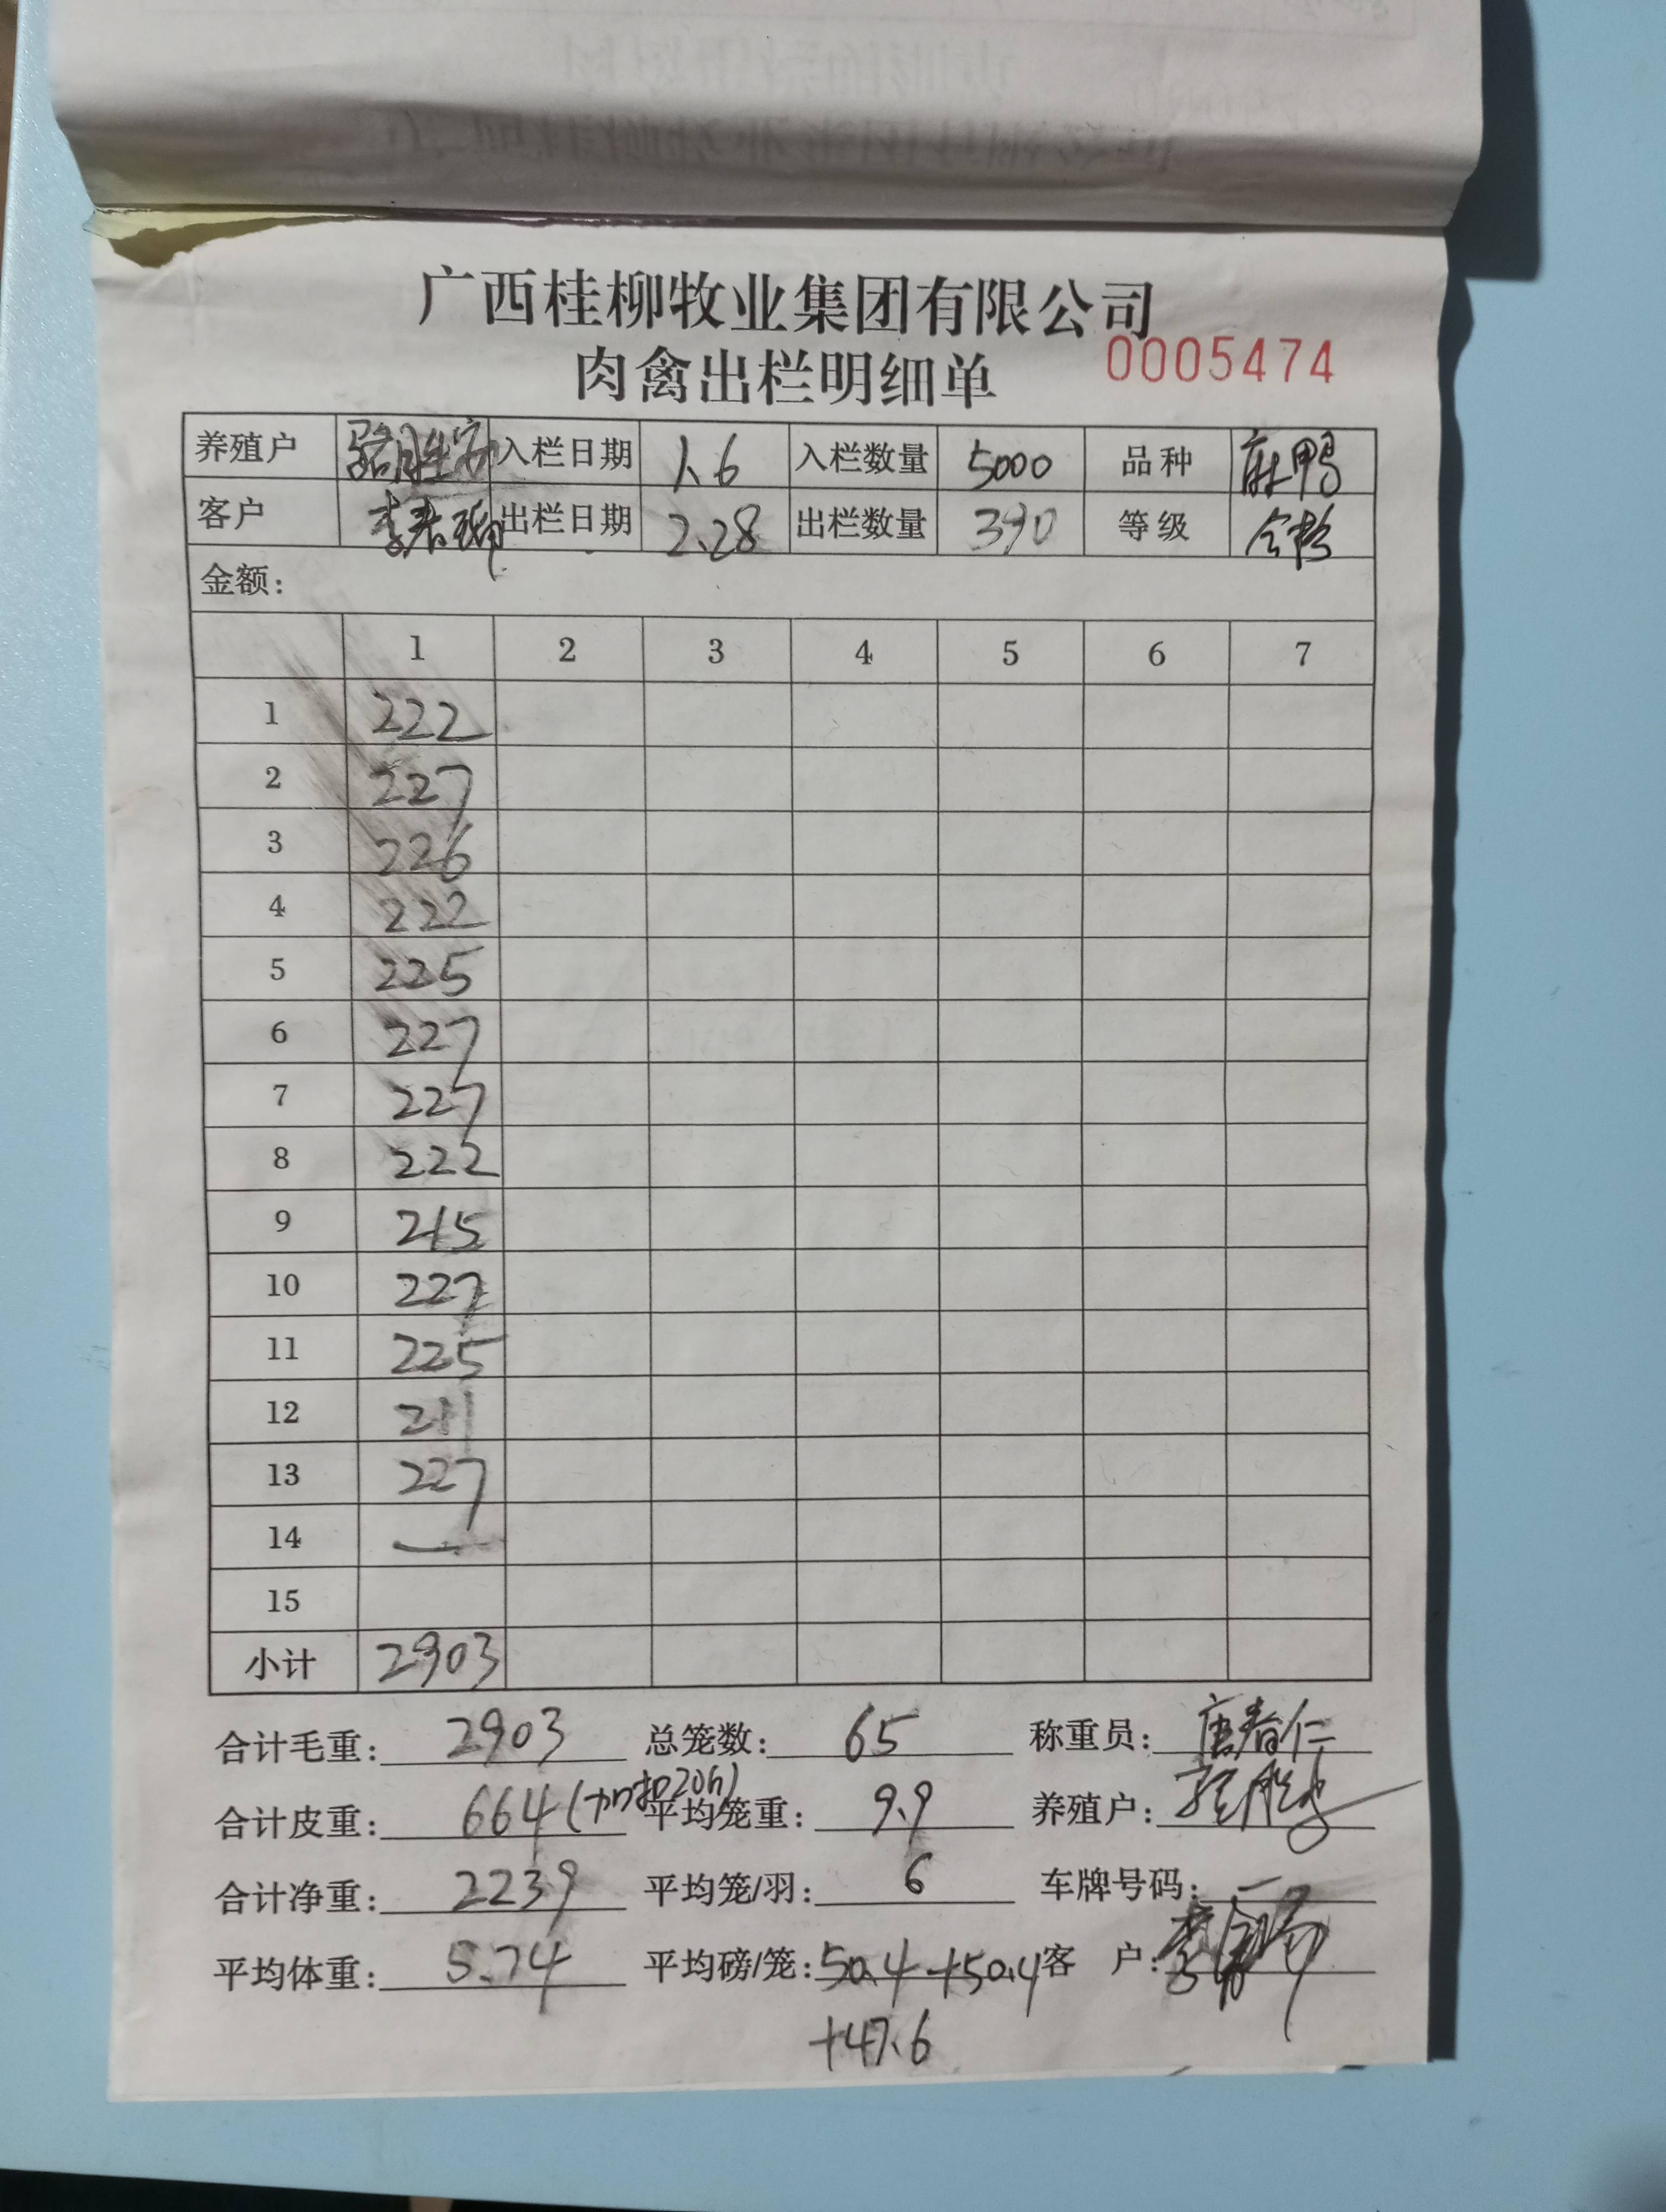 广西桂柳牧业集团有限公司
肉禽出栏明细单 0005474
养殖户 骆胜安 入栏日期 1.6 入栏数量 5000 品种 麻鸭
客户 出栏日期 2.28 出栏数量 390 等级 合格
金额:
1 2 3 4 5 6 7
1 222
2 227
3 226
4 222
5 225
6 227
7 227
8 222
9 215
10 227
11 225
12 211
13 227
14 —
15
小计 2903
合计毛重: 2903 总笼数: 65 称重员: 唐春仁
合计皮重: 664(加扣20斤) 平均笼重: 9.9 养殖户:
合计净重: 2239 平均笼/羽: 6 车牌号码: —
平均体重: 5.74 平均磅/笼: 50.4+50.4 客 户:
+47.6